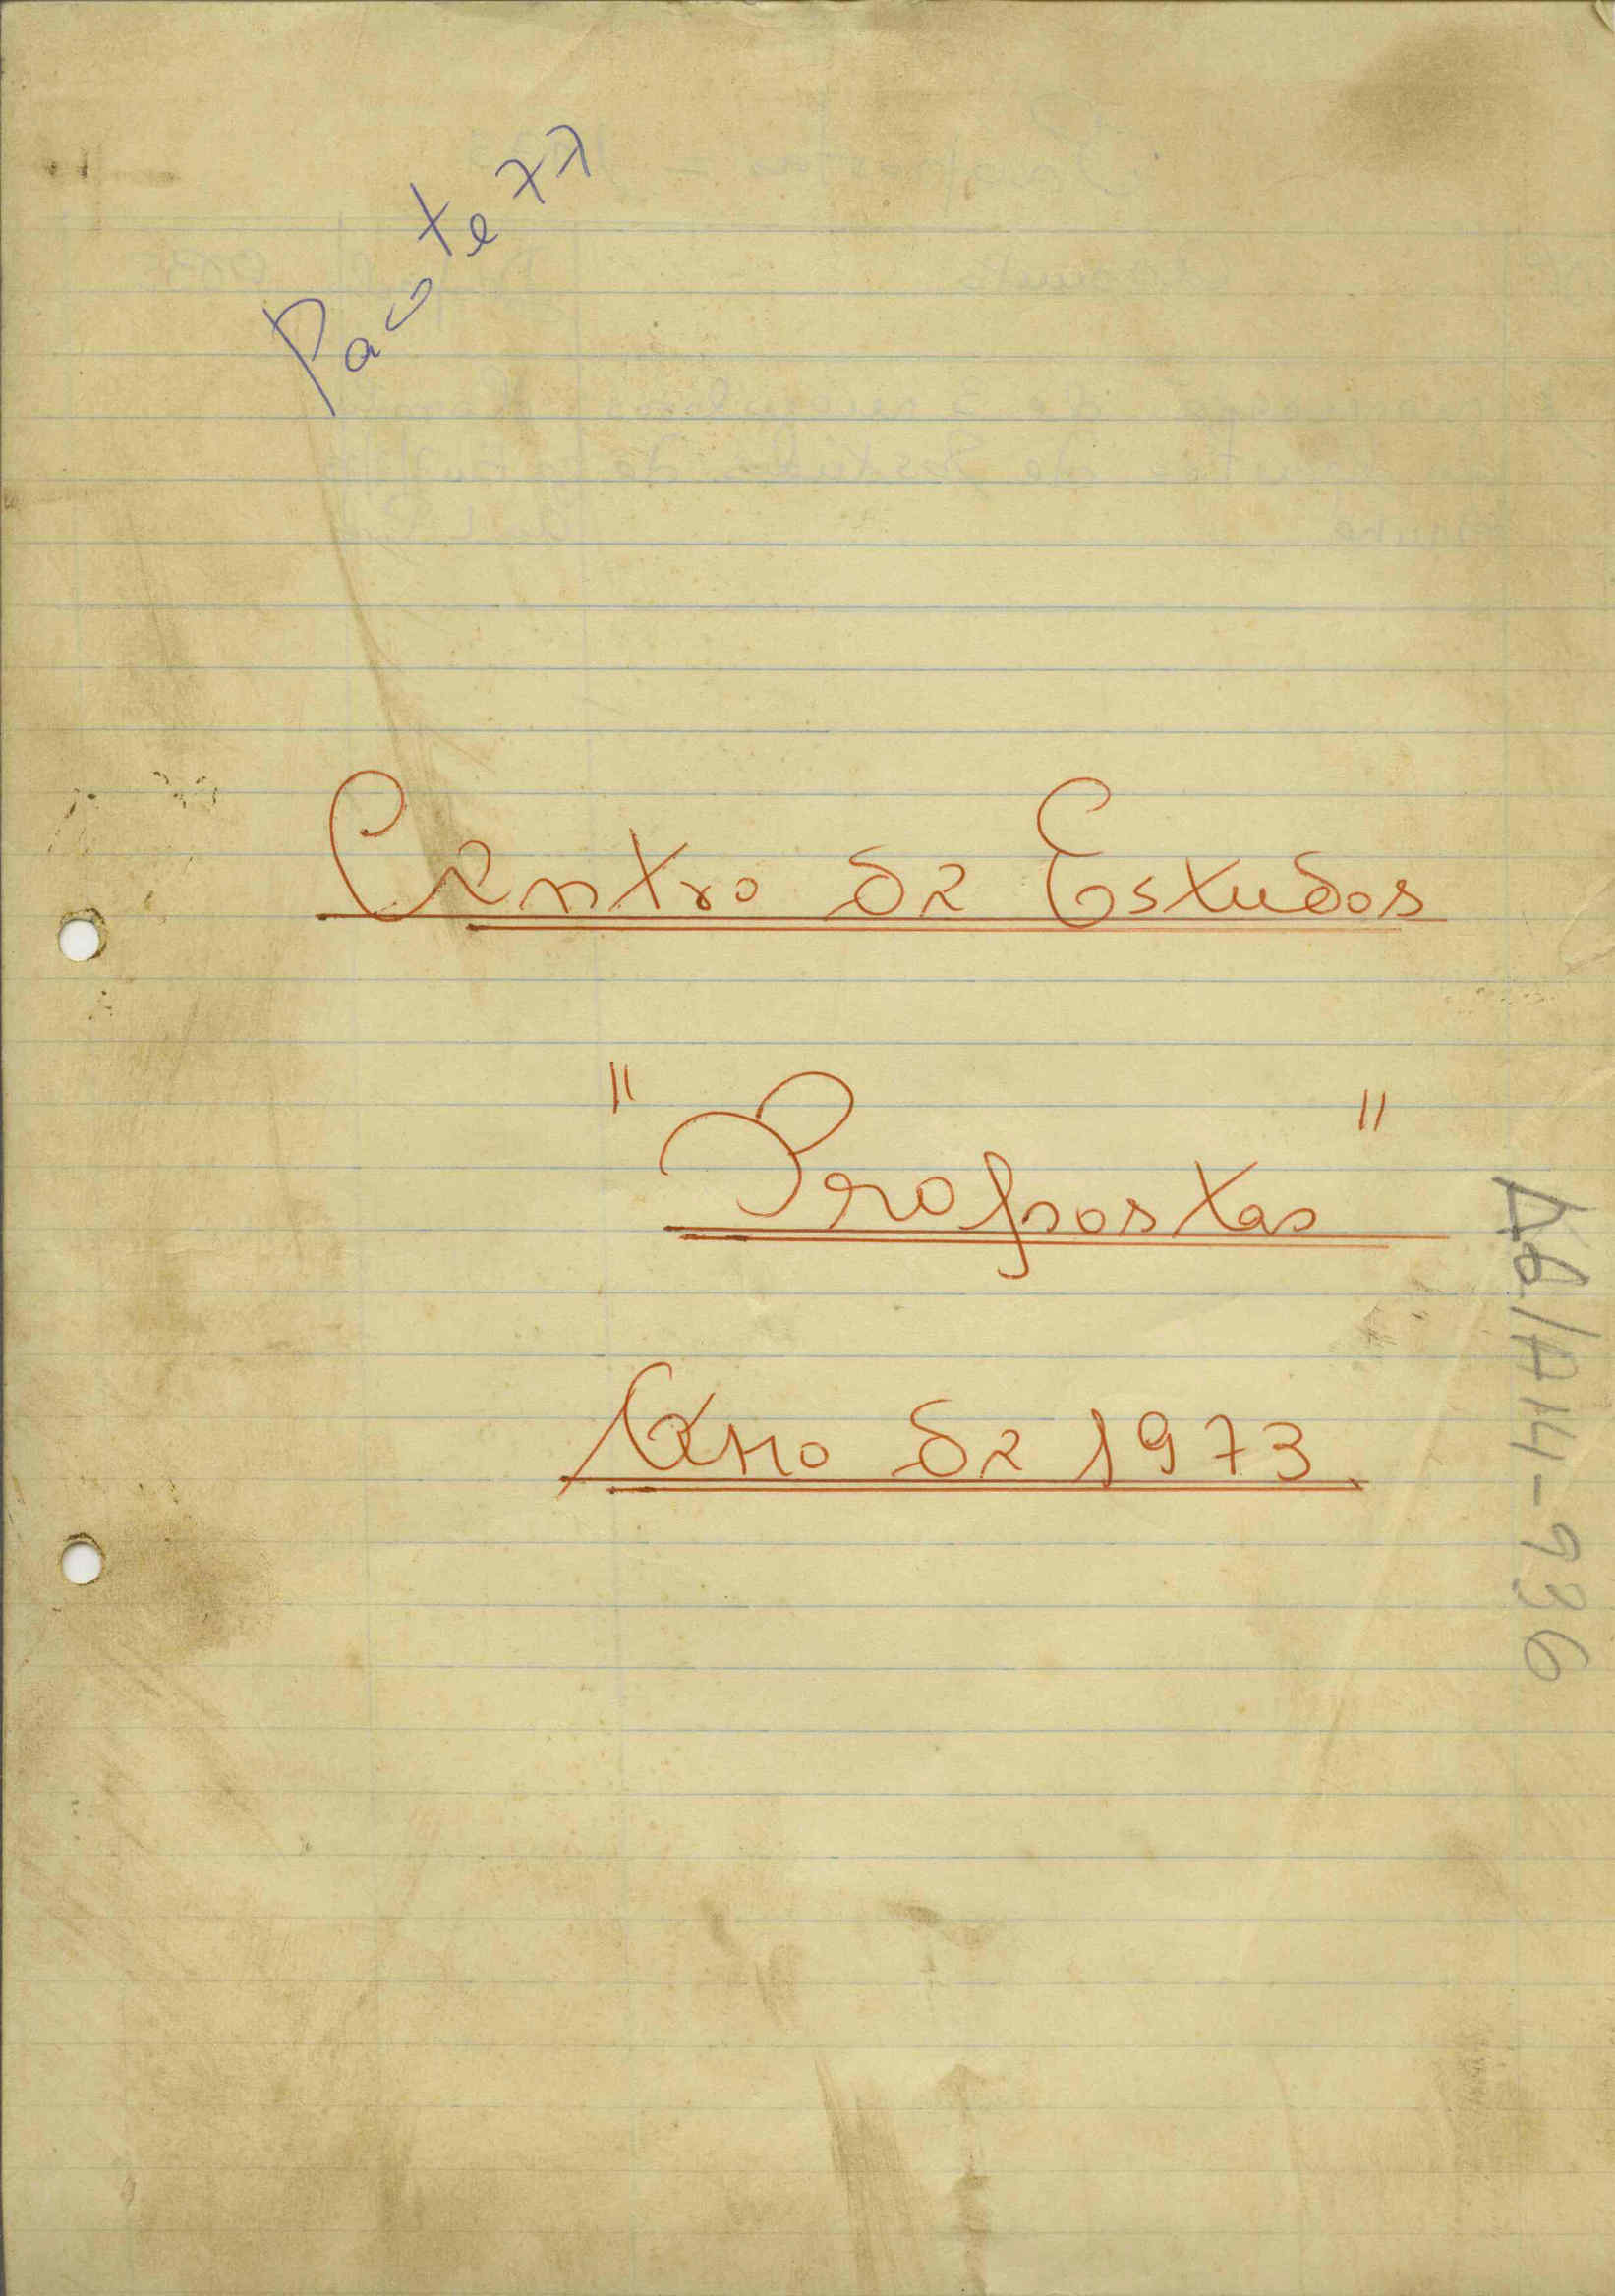 Pacote 77
Centro de Estudos
"Propostas"
Ano de 1973.
AB/A14-936